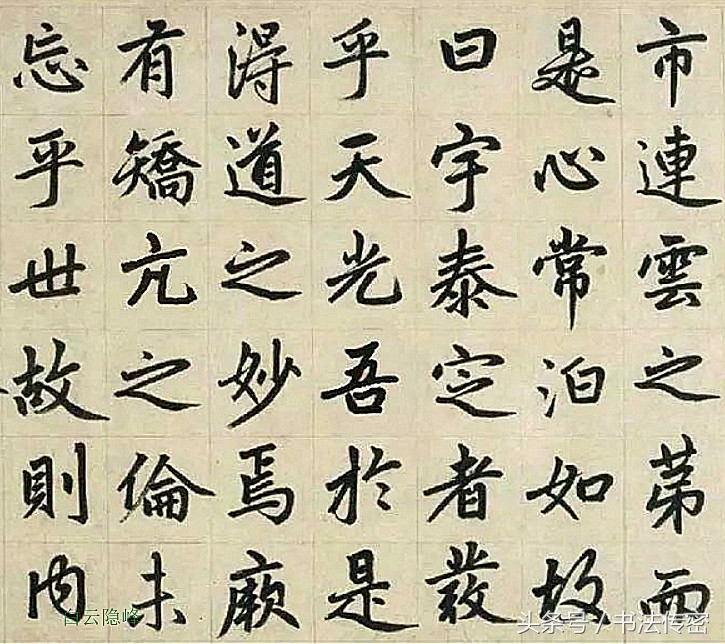 市連雲之第而
是心常泊如故
曰宇泰定者發
乎天光吾於是
得道之妙焉厥
有矯亢之倫未
忘乎世故則内
白云隐峰
头条号 / 书法传密